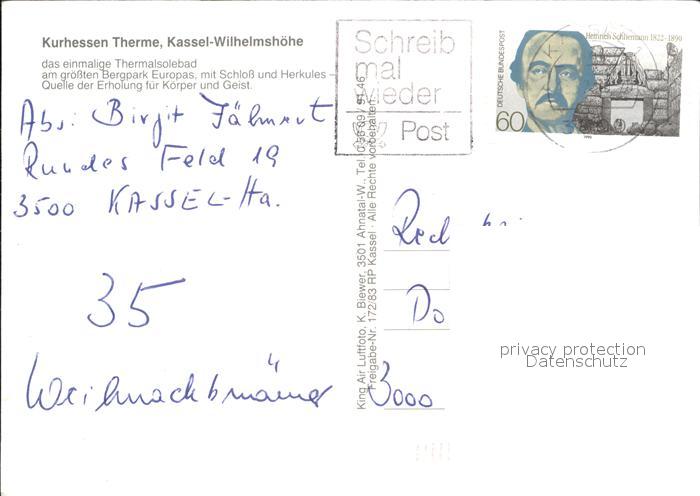 Kurhessen Therme, Kassel-Wilhelmshöhe
das einmalige Thermalsolebad
am größten Bergpark Europas, mit Schloß und Herkules -
Quelle der Erholung für Körper und Geist.
Abs: Birgit
Rundes Feld 19
3500 KASSEL-Ha.
35
Weihnachtsmänner
King Air Luftfoto, K. Biewer, 3501 Ahnatal-W., Tel. 0 56 09 / 91 46
Freigabe-Nr. 172/83 RP Kassel · Alle Rechte vorbehalten.
Schreib
mal
wieder
Post
DEUTSCHE BUNDESPOST
60
Heinrich Schliemann 1822-1890
1990
Do
3000
privacy protection
Datenschutz